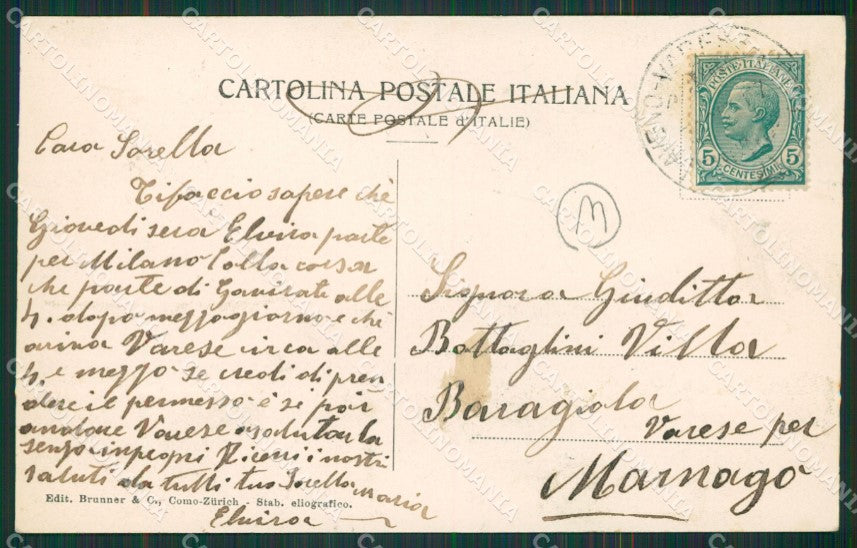 CARTOLINA POSTALE ITALIANA
(CARTE POSTALE d'ITALIE)
POSTE ITALIANE
5 CENTESIMI 5
M
Cara Sorella
Tifaccio sapere chè
Giovedi sera Elvira parte
per Milano Colla corsa
che parte di Gavirate alle
4. dopo mezzogiorno e chè
ariva Varese circa alle
4. e mezzo se credi di pren
dere il permesso è se poi
andare Varese a salutarla
senza inpegni Ricevi i nostri
saluti da tutti tuo Sorella Maria
Elvira
Signora Giuditta
Battaglini Villa
Baragiola
Varese per
Marnago
Edit. Brunner & C., Como-Zürich - Stab. eliografico.
CARTOLINOMANIA